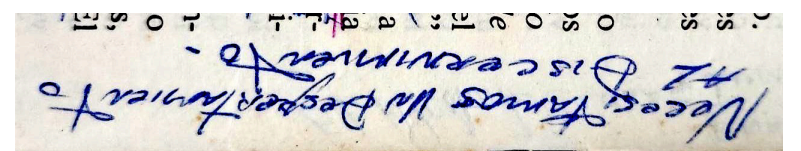 Necesitamos Un Despertamiento
AL Discernimiento.